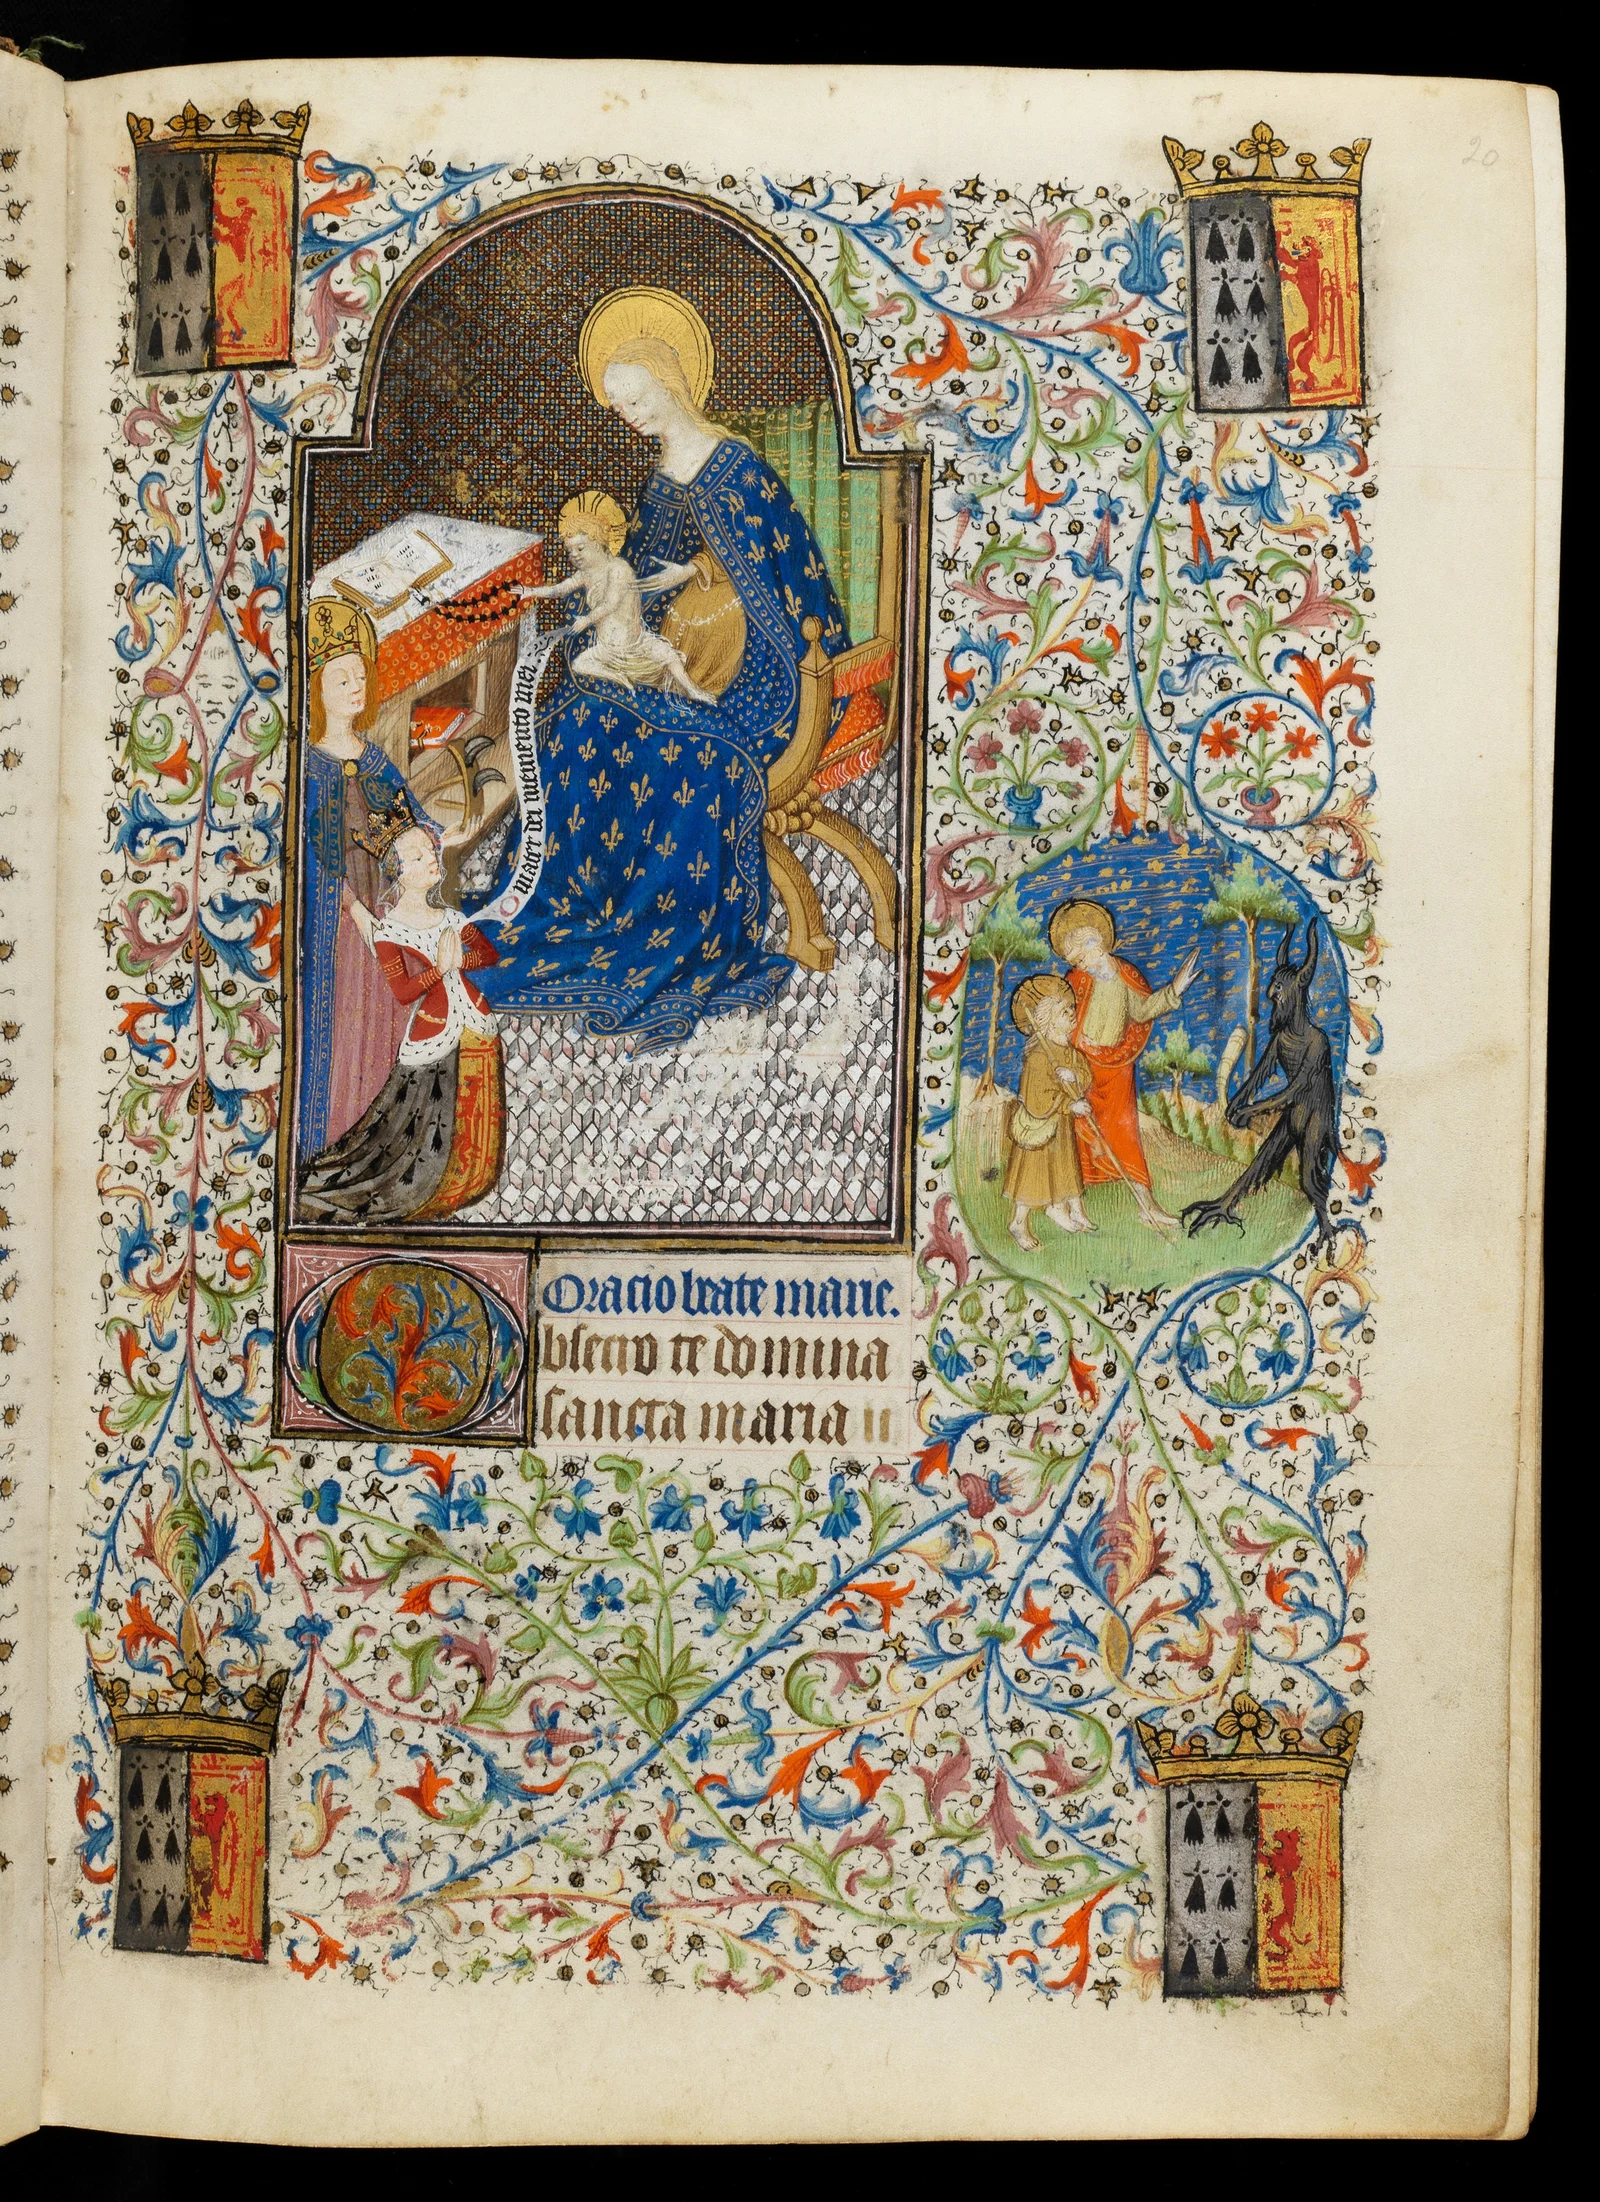 20
O mater dei memento mei.
Oracio beate marie.
bsecro te domina
sancta maria